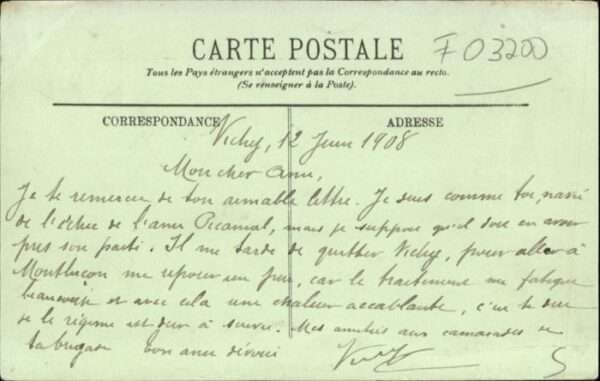 CARTE POSTALE
F 03200
Tous les Pays étrangers n'acceptent pas la Correspondance au recto.
(Se renseigner à la Poste).
CORRESPONDANCE
ADRESSE
Vichy, 12 Juin 1908
Mon cher ami,
Je te remercie de ton aimable lettre. Je suis comme toi, navré
de l'échec de l'ami Picamal, mais je suppose qu'il doit en avoir
pris son parti. Il me tarde de quitter Vichy, pour aller à
Montluçon me reposer un peu, car le traitement me fatigue
beaucoup et avec cela une chaleur accablante, c'est te dire
si le régime est dur à suivre. Mes amitiés aux camarades de
ta brigade ton ami dévoué